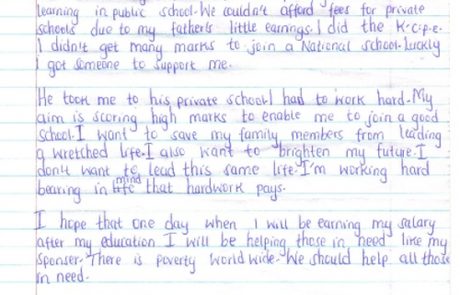 learning in public school. We couldn't afford fees for private
schools due to my father's little earnings. I did the K.C.P.E.
I didn't get many marks to join a National school. Luckly
I got someone to support me.
He took me to his private school. I had to work hard. My
aim is scoring high marks to enable me to join a good
school. I want to save my family members from leading
a wretched life. I also want to brighten my future. I
don't want to lead this same life. I'm working hard
bearing in mind that hardwork pays.
I hope that one day when I will be earning my salary
after my education I will be helping those in need like my
sponser. There is poverty world wide. We should help all those
in need.